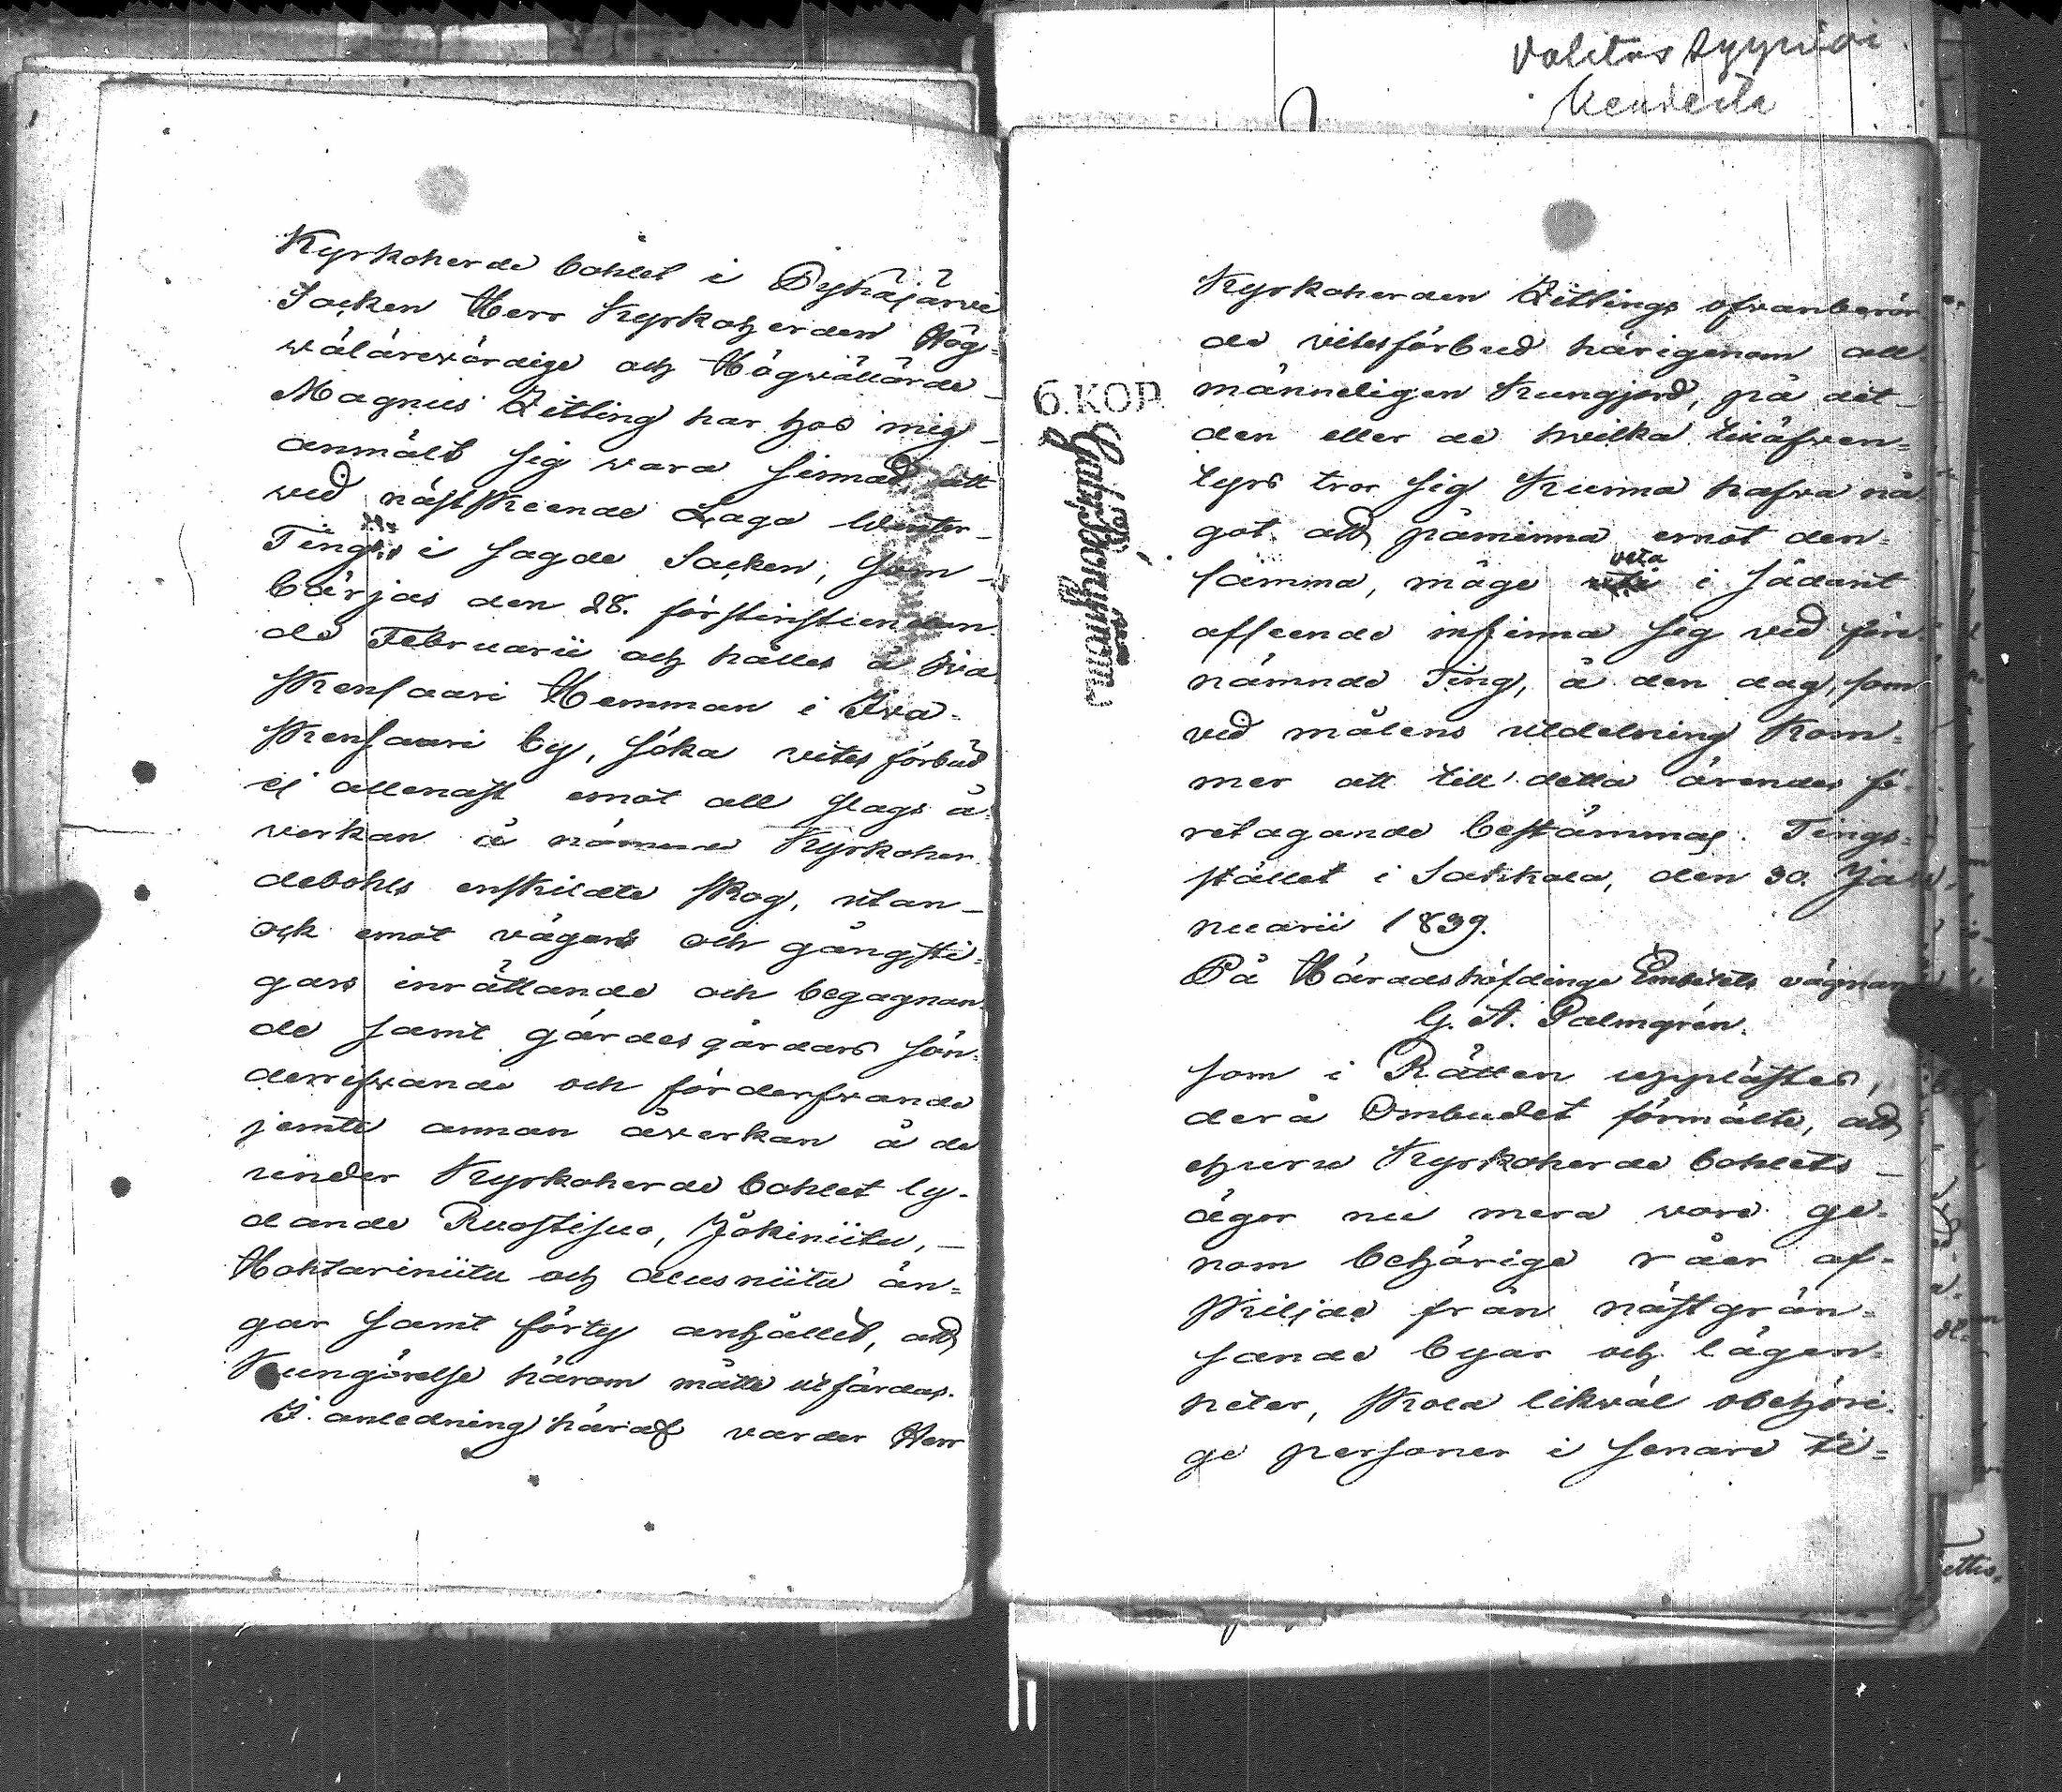 Kyrkoherde bohlet i Pyhäjärvi
Socken Herr Kyrkoherden Hög-
wälärewördige och Högwällärde
Magnus Zitting har hos mig
anmält sig wara sinnad, att
wid nästskeende Laga Winter-
Ting i sagde Socken, som
börjas den 28. förstinstundan-
de Februarii och hålles å Iwa
skensaari Hemman i Iwa-
skensaari by, söka vites förbud
ej allenast emot all slags å-
verkan å nämnde Kyrkoher-
debohls enskildte skog, utan
ock emot vägars och gångsti-
gars inrättande och begagnan-
de samt gärdesgårdars sön-
derrifwande och förderfwande
jemte annan åverkan å de
under Kyrkoherde bohlet ly-
dande Ruostisuo, Jokiniitu,
Hohtariniitu och Alusniitu än-
gar samt förty anhållit, att
Kungörelse härom måtte utfärdas.
I anledning häraf varder Herr
valitus syynioi
6. KOP.
Kyrkoherden Zittings ofvanberör
de vitesförbud härigenom all
männeligen kungjord, på det
den eller de hvilka tiläfwen-
tyrs tror sig kunna hafva nå
got att påminna emot den-
samma, måge veta i sådant
afseende infinna sig vid för
nämnde Ting, å den dag, som
vid målens utdelning kom-
mer att till detta ärendes fö-
retagande bestämmas. Tings-
stället i Sakkola, den 30. Ja
nuarii 1839.
På Häradshöfdinge Embetets vägnar
G. A. Palmgrén.
som i Rätten upplästes,
derå Ombudet förmälte, att
ehuru Kyrkoherde bohlets
ägor nu mera vore ge-
nom behörige råer af-
skiljde från nästgrän-
sande byar och lägen-
heter, skola likväl obehöri-
ge personer i senare ti-